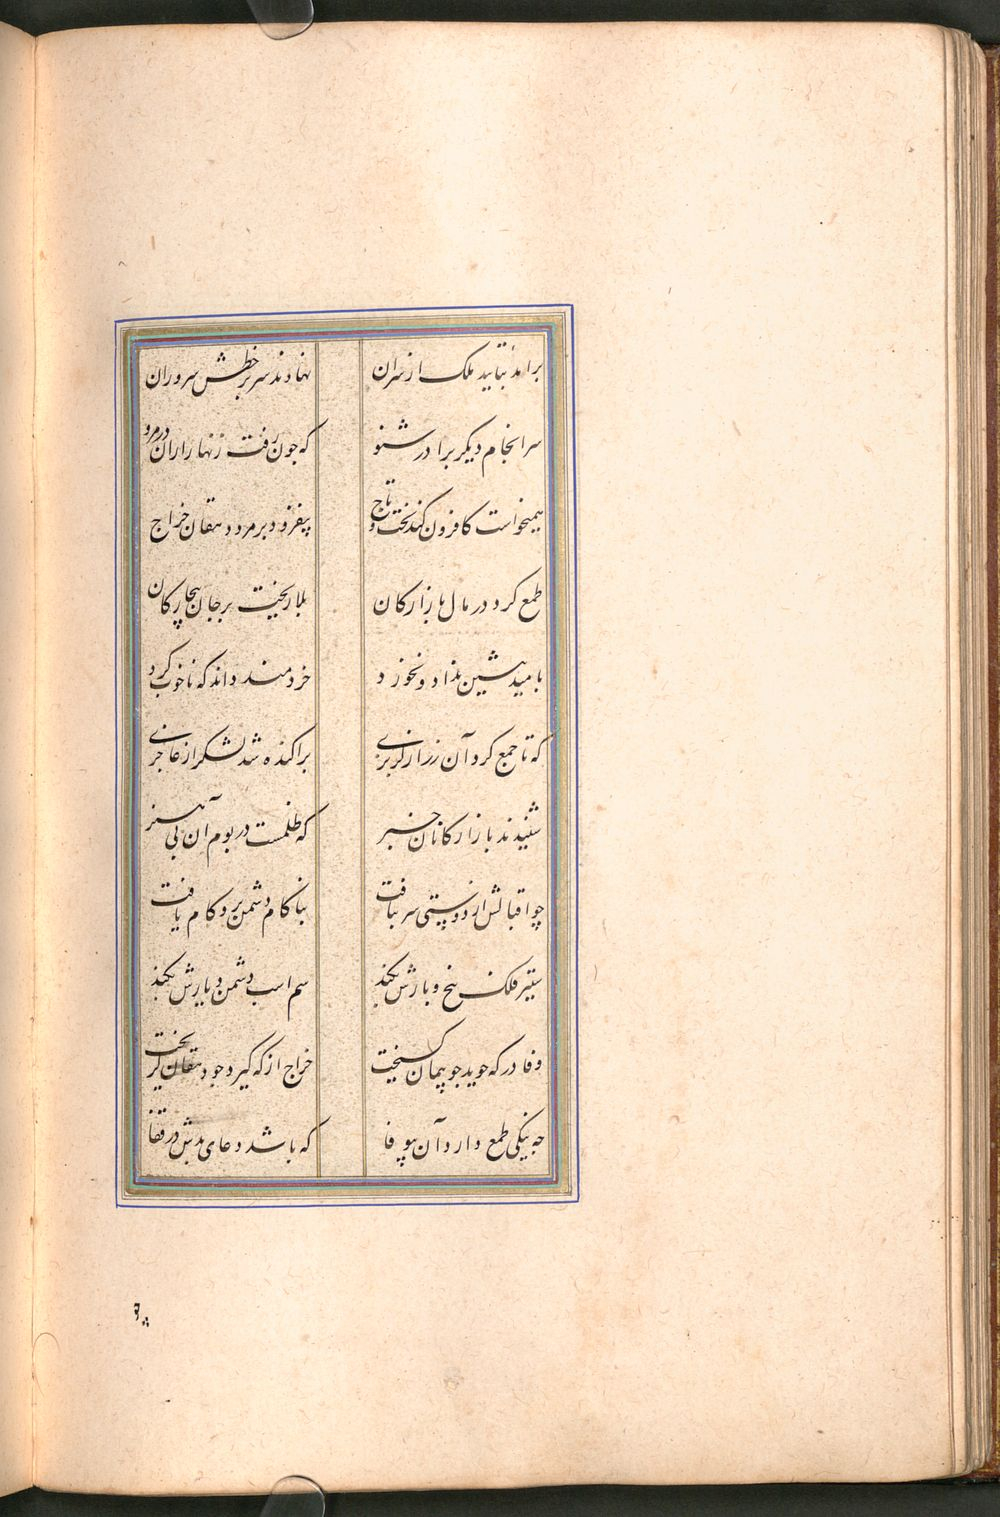 برامد بتایید ملک از سران نهادند سر بر خطش سروران
سرانجام دیکر برادر شنو که چون رفت زنهار اران در مرو
همیخواست کافزون کند تخت و تاج بیفزود بر مرد دهقان خراج
طمع کرد در مال بازارکان بلا ریخت بر جان بیچارکان
بامید بیشی نداد و نخورد خردمند داند که ناخوب کرد
که تا جمع کرد آن زر از کربزی براکنده شد لشکر از عاجزی
شنیدند بازارکانان خبر که ظلمست در بوم آن بی هنر
چو اقبالش از دوستی سر بتافت بناکام دشمن برو کام یافت
ستیز فلک بیخ و بارش بکند سم اسب دشمن دیارش بکند
وفا در که جوید چو پیمان کسیخت خراج از که کیرد چو دهقان کریخت
چه نیکی طمع دارد آن بیوفا که باشد دعای بدش در قفا